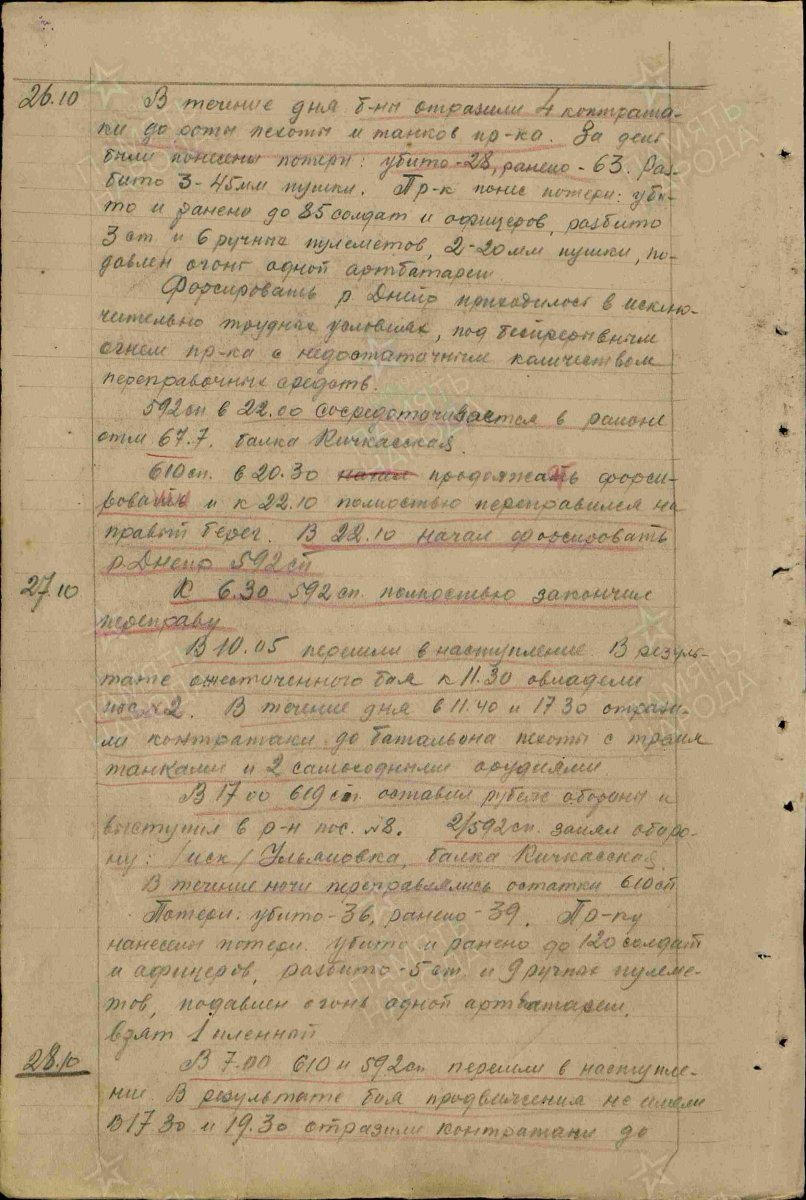 26.10 В течение дня б-ны отразили 4 контрата-
ки до роты пехоты и танков пр-ка. За день
были понесены потери: убито-28, ранено-63. Раз-
бито 3-45мм пушки. Пр-к понес потери: уби-
то и ранено до 85 солдат и офицеров, разбито
3 ст и 6 ручных пулеметов, 2-20мм пушки, по-
давлен огонь одной артбатареи.
Форсировать р Днепр приходилось в исклю-
чительно трудных условиях, под беспрерывным
огнем пр-ка с недостаточным количеством
переправочных средств.
592сп в 22.00 сосредотачивается в районе
отм 67.7. балка Кичкасская.
610сп. в 20.30 начал продолжать форси-
ровать и к 22.10 полностью переправился на
правый берег. В 22.10 начал форсировать
р. Днепр 592 сп
27.10 К 6.30 592 сп. полностью закончил
переправу
В 10.05 перешли в наступление. В резуль-
тате ожесточенного боя к 11.30 овладели
пос. х 2. В течение дня в 11.40 и 17 30 отрази-
ли контратаки до батальона пехоты с тремя
танками и 2 самоходными орудиями
В 17 00 619 сп. оставил рубеж обороны и
выступил в р-н пос. №8. 2/592сп. занял оборо-
ну: /иск/ Ульяновка, балка Кичкасская.
В течение ночи переправлялись остатки 610сп
Потери: убито-36, ранено-39. Пр-ку
нанесены потери: убито и ранено до 120 солдат
и офицеров, разбито-5 ст. и 9 ручных пулеме-
тов, подавлен огонь одной артбатареи,
взят 1 пленный
28.10 В 7.00 610 и 592сп перешли в наступле-
ние. В результате боя продвижения не имели
В 17 30 и 19.30 отразили контратаки до